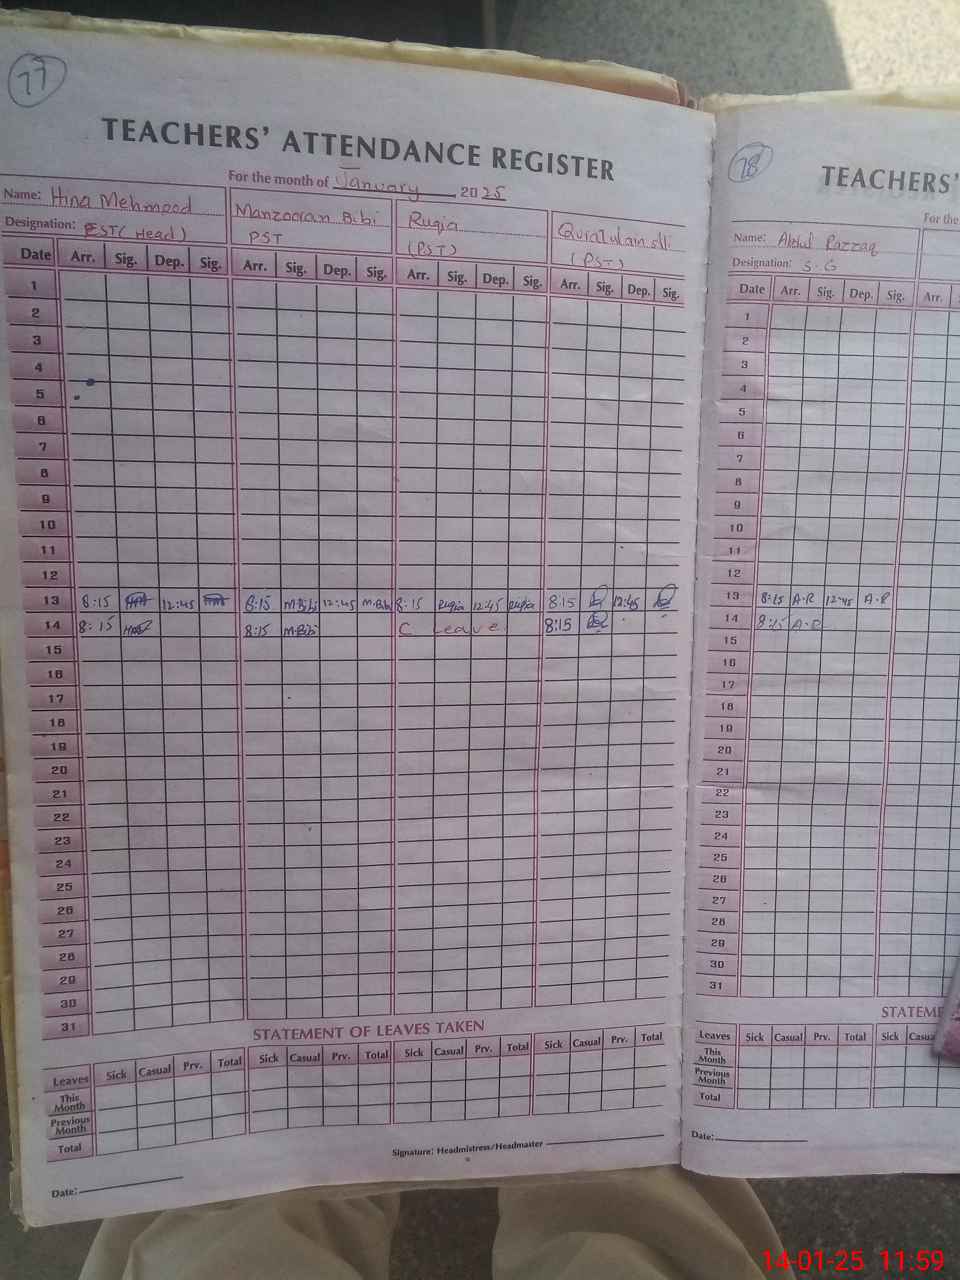 77
TEACHERS' ATTENDANCE REGISTER
For the month of January 2025
Name: Hina Mehmood
Designation: EST( Head )
Manzooran Bibi
PST
Ruqia
(PST)
(PST)
Date Arr. Sig. Dep. Sig. Arr. Sig. Dep. Sig. Arr. Sig. Dep. Sig. Arr. Sig. Dep. Sig.
1
2
3
4
5
6
7
8
9
10
11
12
13 8:15 12:45 8:15 M.Bibi 12:45 M.Bibi 8:15 Ruqia 12:45 Ruqia 8:15 12:45
14 8:15 8:15 M.Bibi C Leave 8:15
15
16
17
18
19
20
21
22
23
24
25
26
27
28
29
30
31
STATEMENT OF LEAVES TAKEN
Leaves Sick Casual Prv. Total Sick Casual Prv. Total Sick Casual Prv. Total Sick Casual Prv. Total
This Month
Previous Month
Total
Signature: Headmistress/Headmaster
Date:
78
TEACHERS'
For the
Name: Abdul Razzaq
Designation: S.G
Date Arr. Sig. Dep. Sig. Arr.
1
2
3
4
5
6
7
8
9
10
11
12
13 8:15 A.R 12:45 A.R
14 8:15 A.R
15
16
17
18
19
20
21
22
23
24
25
26
27
28
29
30
31
STATEME
Leaves Sick Casual Prv. Total Sick Casua
This Month
Previous Month
Total
Date:
14-01-25 11:59